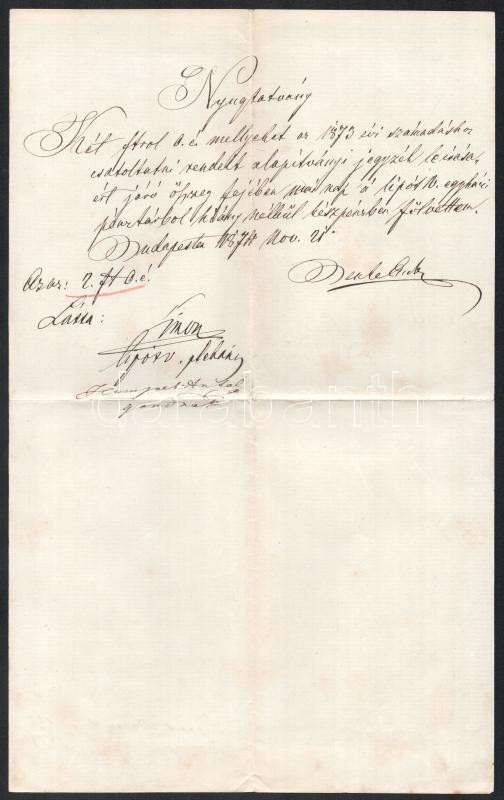 Nyugtatvány
Két ftrol o.é. mellyeket az 1873 évi számadáshoz
csatoltatni rendelt alapítványi jegyzék leirása,
ért járó öszeg fejében mai nap a lipótv. egyházi
pénztárból hiány nélkül készpénzben fölvettem.
Budapesten 1874 Nov. 21.
Azaz: 2. ft o.é.
Látta:
Simon
lipótv. plébán
Antal
gondnok
darabanth